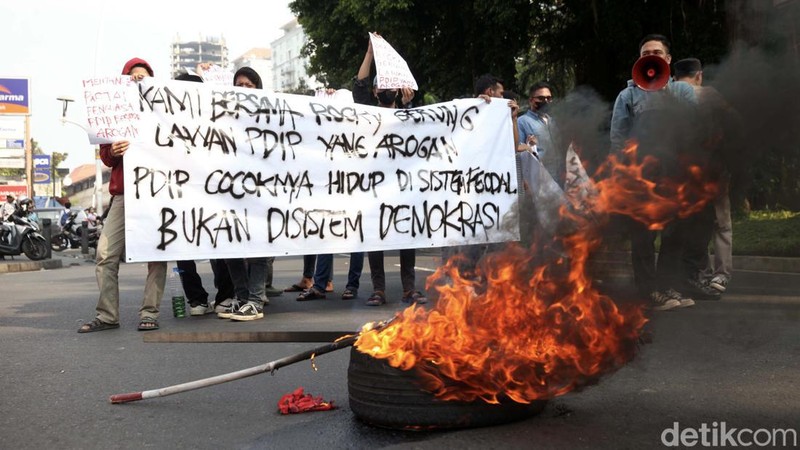 KAMI BERSAMA ROCKY GERUNG
LAWAN PDIP YANG AROGAN
PDIP COCOKNYA HIDUP DI SISTEM FEODAL
BUKAN DISISTEM DEMOKRASI
PARTAI
PENGUASA
AROGAN
arma
detikcom